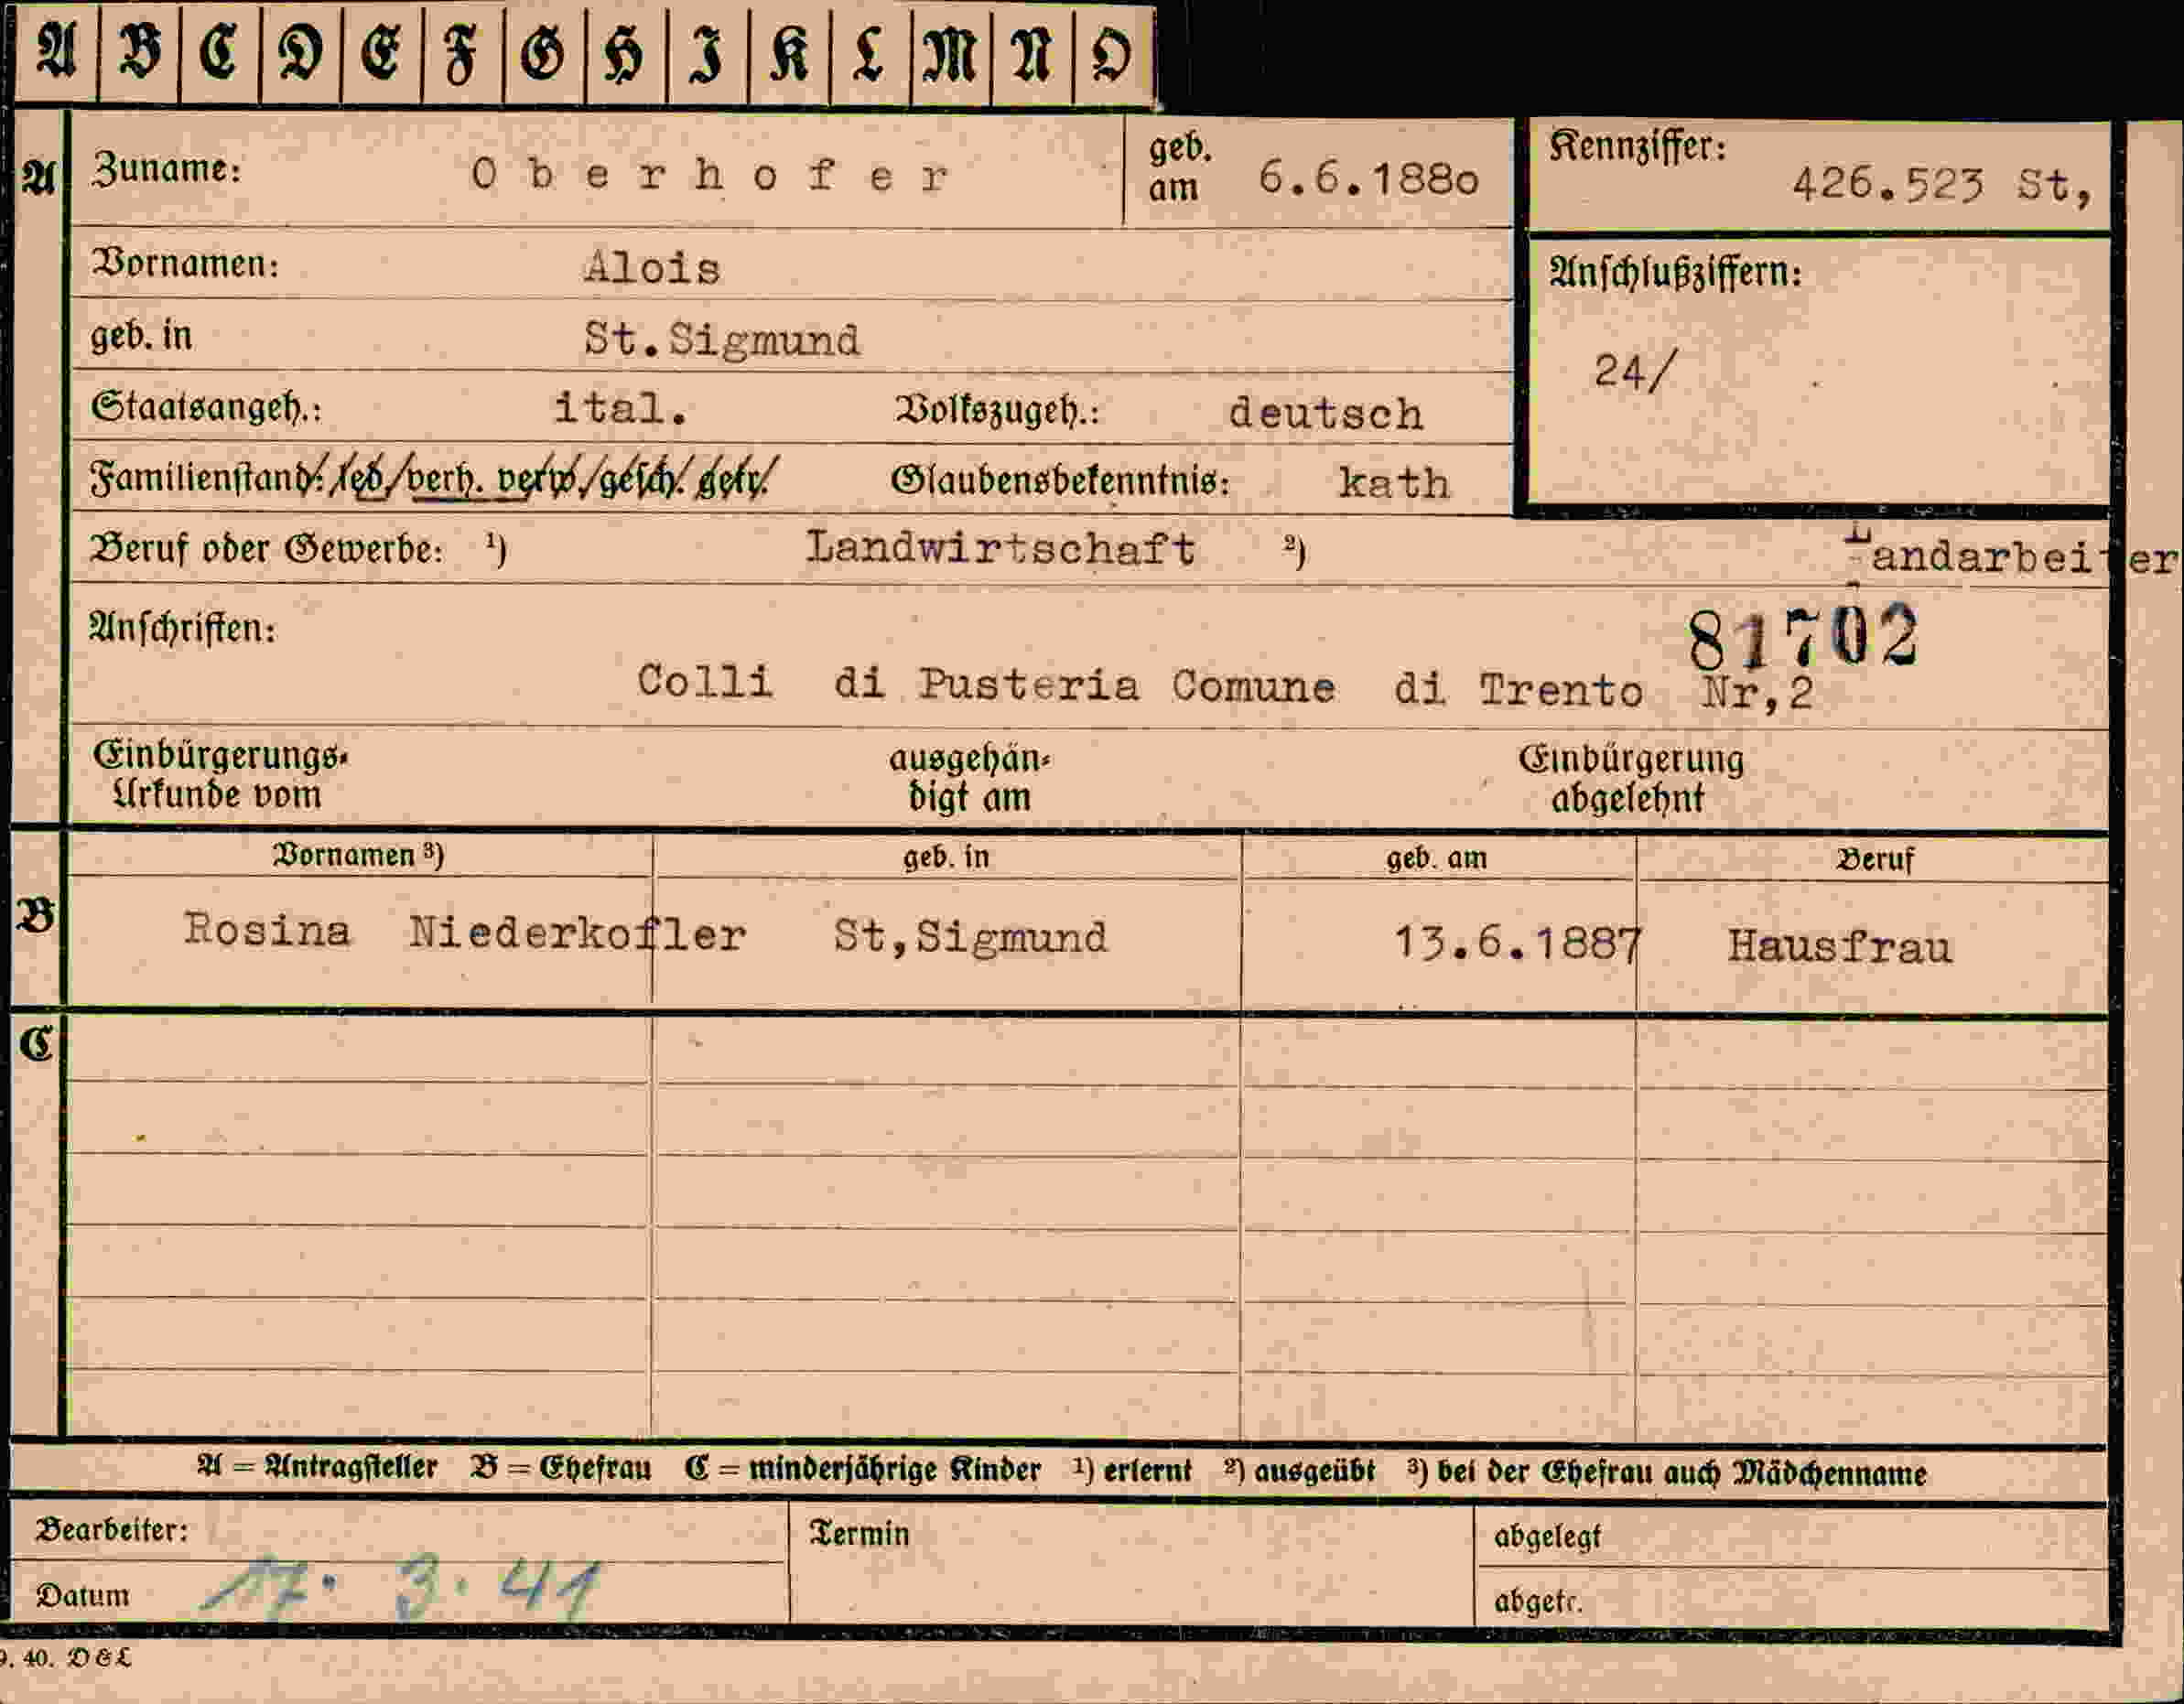 A B C D E F G H I K L M N O
A Zuname: Oberhofer geb. am 6.6.1880 Kennziffer: 426.523 St,
Vornamen: Alois Anschlußziffern:
geb. in St.Sigmund 24/
Staatsangeh.: ital. Volkszugeh.: deutsch
Familienstand: led/verh. verw./gesch. getr. Glaubensbekenntnis: kath
Beruf oder Gewerbe: ¹) Landwirtschaft ²) Landarbeiter
Anschriften: 81702
Colli di Pusteria Comune di Trento Nr,2
Einbürgerungs- ausgehän- Einbürgerung
Urkunde vom digt am abgelehnt
Vornamen ³) geb. in geb. am Beruf
B Rosina Niederkofler St,Sigmund 13.6.1887 Hausfrau
C
A = Antragsteller B = Ehefrau C = minderjährige Kinder ¹) erlernt ²) ausgeübt ³) bei der Ehefrau auch Mädchenname
Bearbeiter: Termin abgelegt
Datum 17. 3. 41 abgetr.
9. 40. D & L